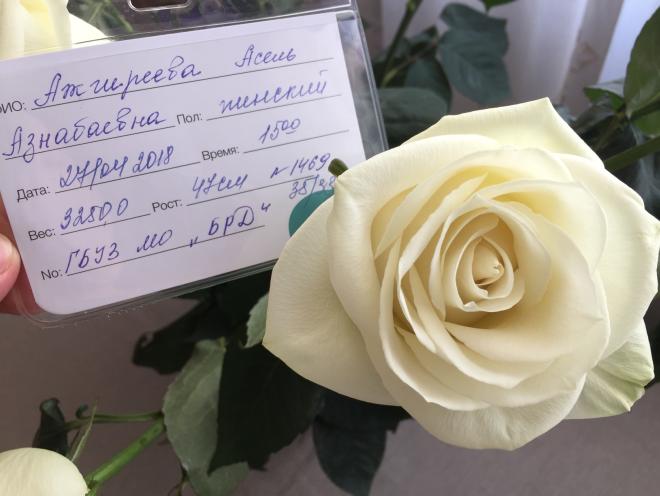 ФИО: Ажгиреева Асель
Азнабаевна Пол: женский
Дата: 27/04 2018 Время: 15 00
Вес: 3250,0 Рост: 47 см № 1469
35/33
No: ГБУЗ МО „БРД“